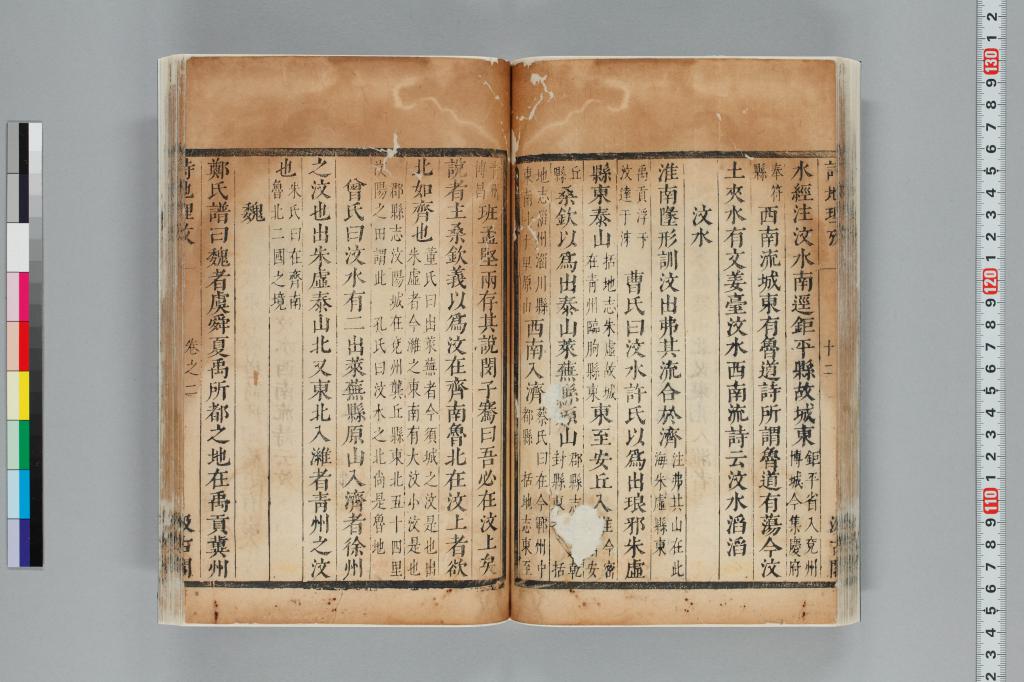 詩地理攷 十二
水經注汶水南逕鉅平縣故城東鉅平省入兗州博城今集慶府
奉符縣西南流城東有魯道詩所謂魯道有蕩今汶
土夾水有文姜臺汶水西南流詩云汶水滔滔
汶水
淮南墬形訓汶出弗其流合於濟注弗其山在此海朱虛縣東
禹貢浮于汶達于泲曹氏曰汶水許氏以為出琅邪朱虛
縣東泰山括地志朱虛故城在青州臨朐縣東東至安丘入
丘縣桑欽以為出泰山萊蕪縣原山郡縣志
西南入濟蔡氏曰在今鄆州中都縣括地志東至
博昌班孟堅兩存其說閔子騫曰吾必在汶上矣
說者主桑欽義以為汶在齊南魯北在汶上者欲
北如齊也董氏曰出萊蕪者今須城之汶是也出朱虛者今濰之東南有大汶小汶是也
郡縣志汶陽城在兗州龔丘縣東北五十四里汶陽之田謂此孔氏曰汶水之北尚是魯地
曾氏曰汶水有二出萊蕪縣原山入濟者徐州
之汶也出朱虛泰山北又東北入濰者青州之汶
也朱氏曰在齊南魯北二國之境
魏
鄭氏譜曰魏者虞舜夏禹所都之地在禹貢冀州
詩地理攷 卷之二 汲古閣